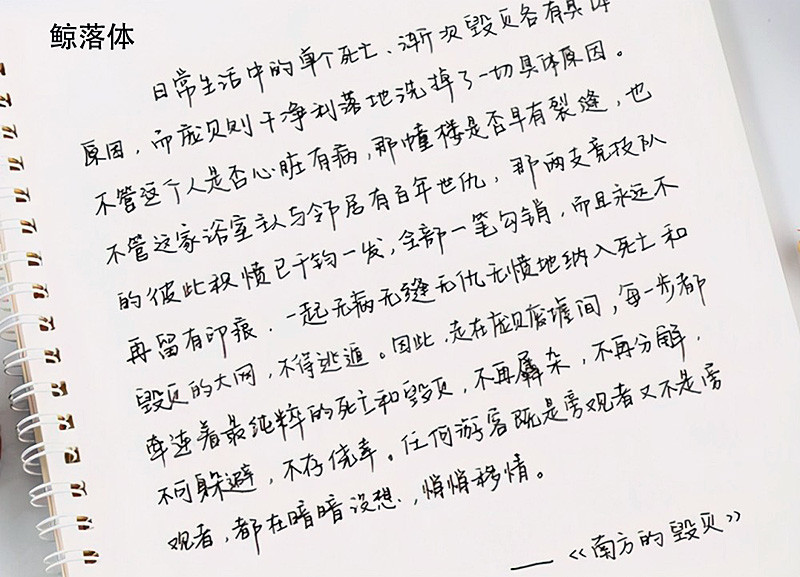 鲸落体
日常生活中的单个死亡、渐次毁灭各有具体
原因，而庞贝则干净利落地洗掉了一切具体原因。
不管这个人是否心脏有病，那幢楼是否早有裂缝，也
不管这家浴室主人与邻居有百年世仇，那两支竞技队
的彼此积愤已千钧一发，全部一笔勾销，而且永远不
再留有印痕．一起无病无缝无仇无愤地纳入死亡和
毁灭的大网，不得逃遁。因此，走在庞贝废墟间，每一步都
牵连着最纯粹的死亡和毁灭，不再羼杂，不再分解．
不可躲避，不存侥幸。任何游客既是旁观者又不是旁
观者，都在暗暗设想．，悄悄移情。
——《南方的毁灭》